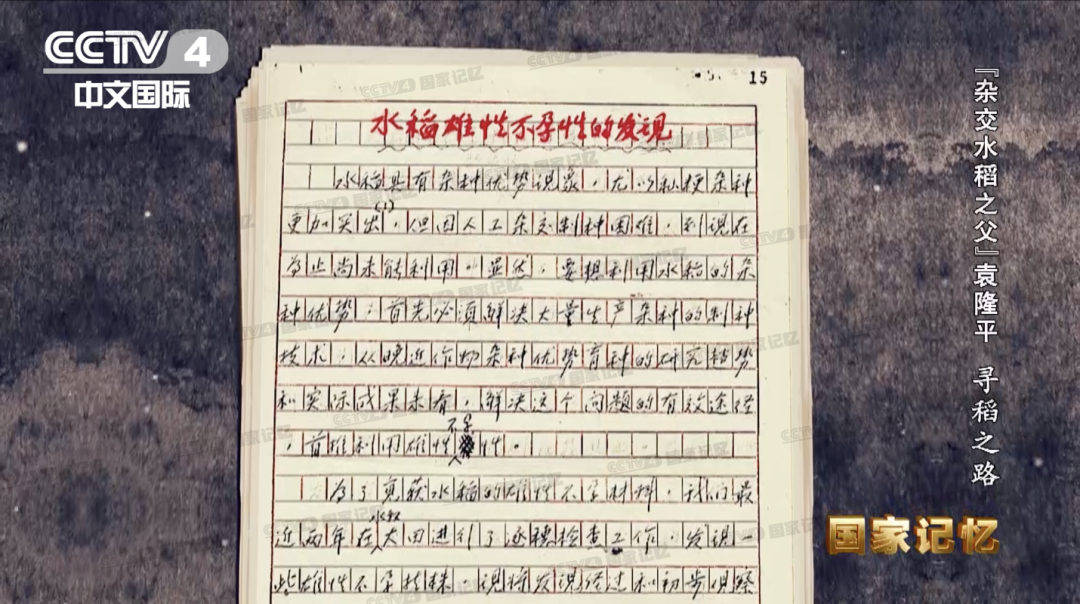 CCTV 4
中文国际
15
水稻雄性不孕性的发现
水稻具有杂种优势现象,尤以籼粳杂种
更加突出(1),但因人工杂交制种困难,到现在
为止尚未能利用。显然,要想利用水稻的杂
种优势,首先必须解决大量生产杂种的制种
技术,从晚近作物杂种优势育种的研究趋势
和实际成果来看,解决这个问题的有效途径
,首推利用雄性不孕性。
为了觅获水稻的雄性不孕材料,我们最
近两年在水稻大田进行了逐穗检查工作,发现一
些雄性不孕植株。现将发现经过和初步观察
『杂交水稻之父』袁隆平 寻稻之路
国家记忆